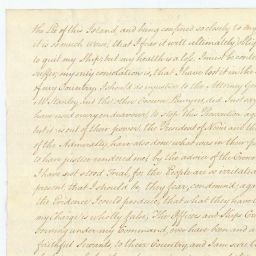 the Air of this Island, and being confined so closely to my
it is so much worse, that I fear it will ultimately
to quit my Ship; but my health is
suffer, my only consolation is, that I have lost it in the
of my Country; I should do injustice to the Attorney
Mr Stanley, and the other Crown Lawyers, did I not say
have used every endeavour to stop this Prosecution
but it is out of their power. the President of Nevis and the
of the Admiralty, have also done what was in their
to have justice rendered me; by the advice of the Crown
I have not stood Trial, for the People are so irritated
present, that I should be, they fear, condemned,
the Evidence I could produce, that what they have
my Charge is wholly false, The Officers and Ships
serving under my Command, ever have been and
faithful Servants to their Country, and I am